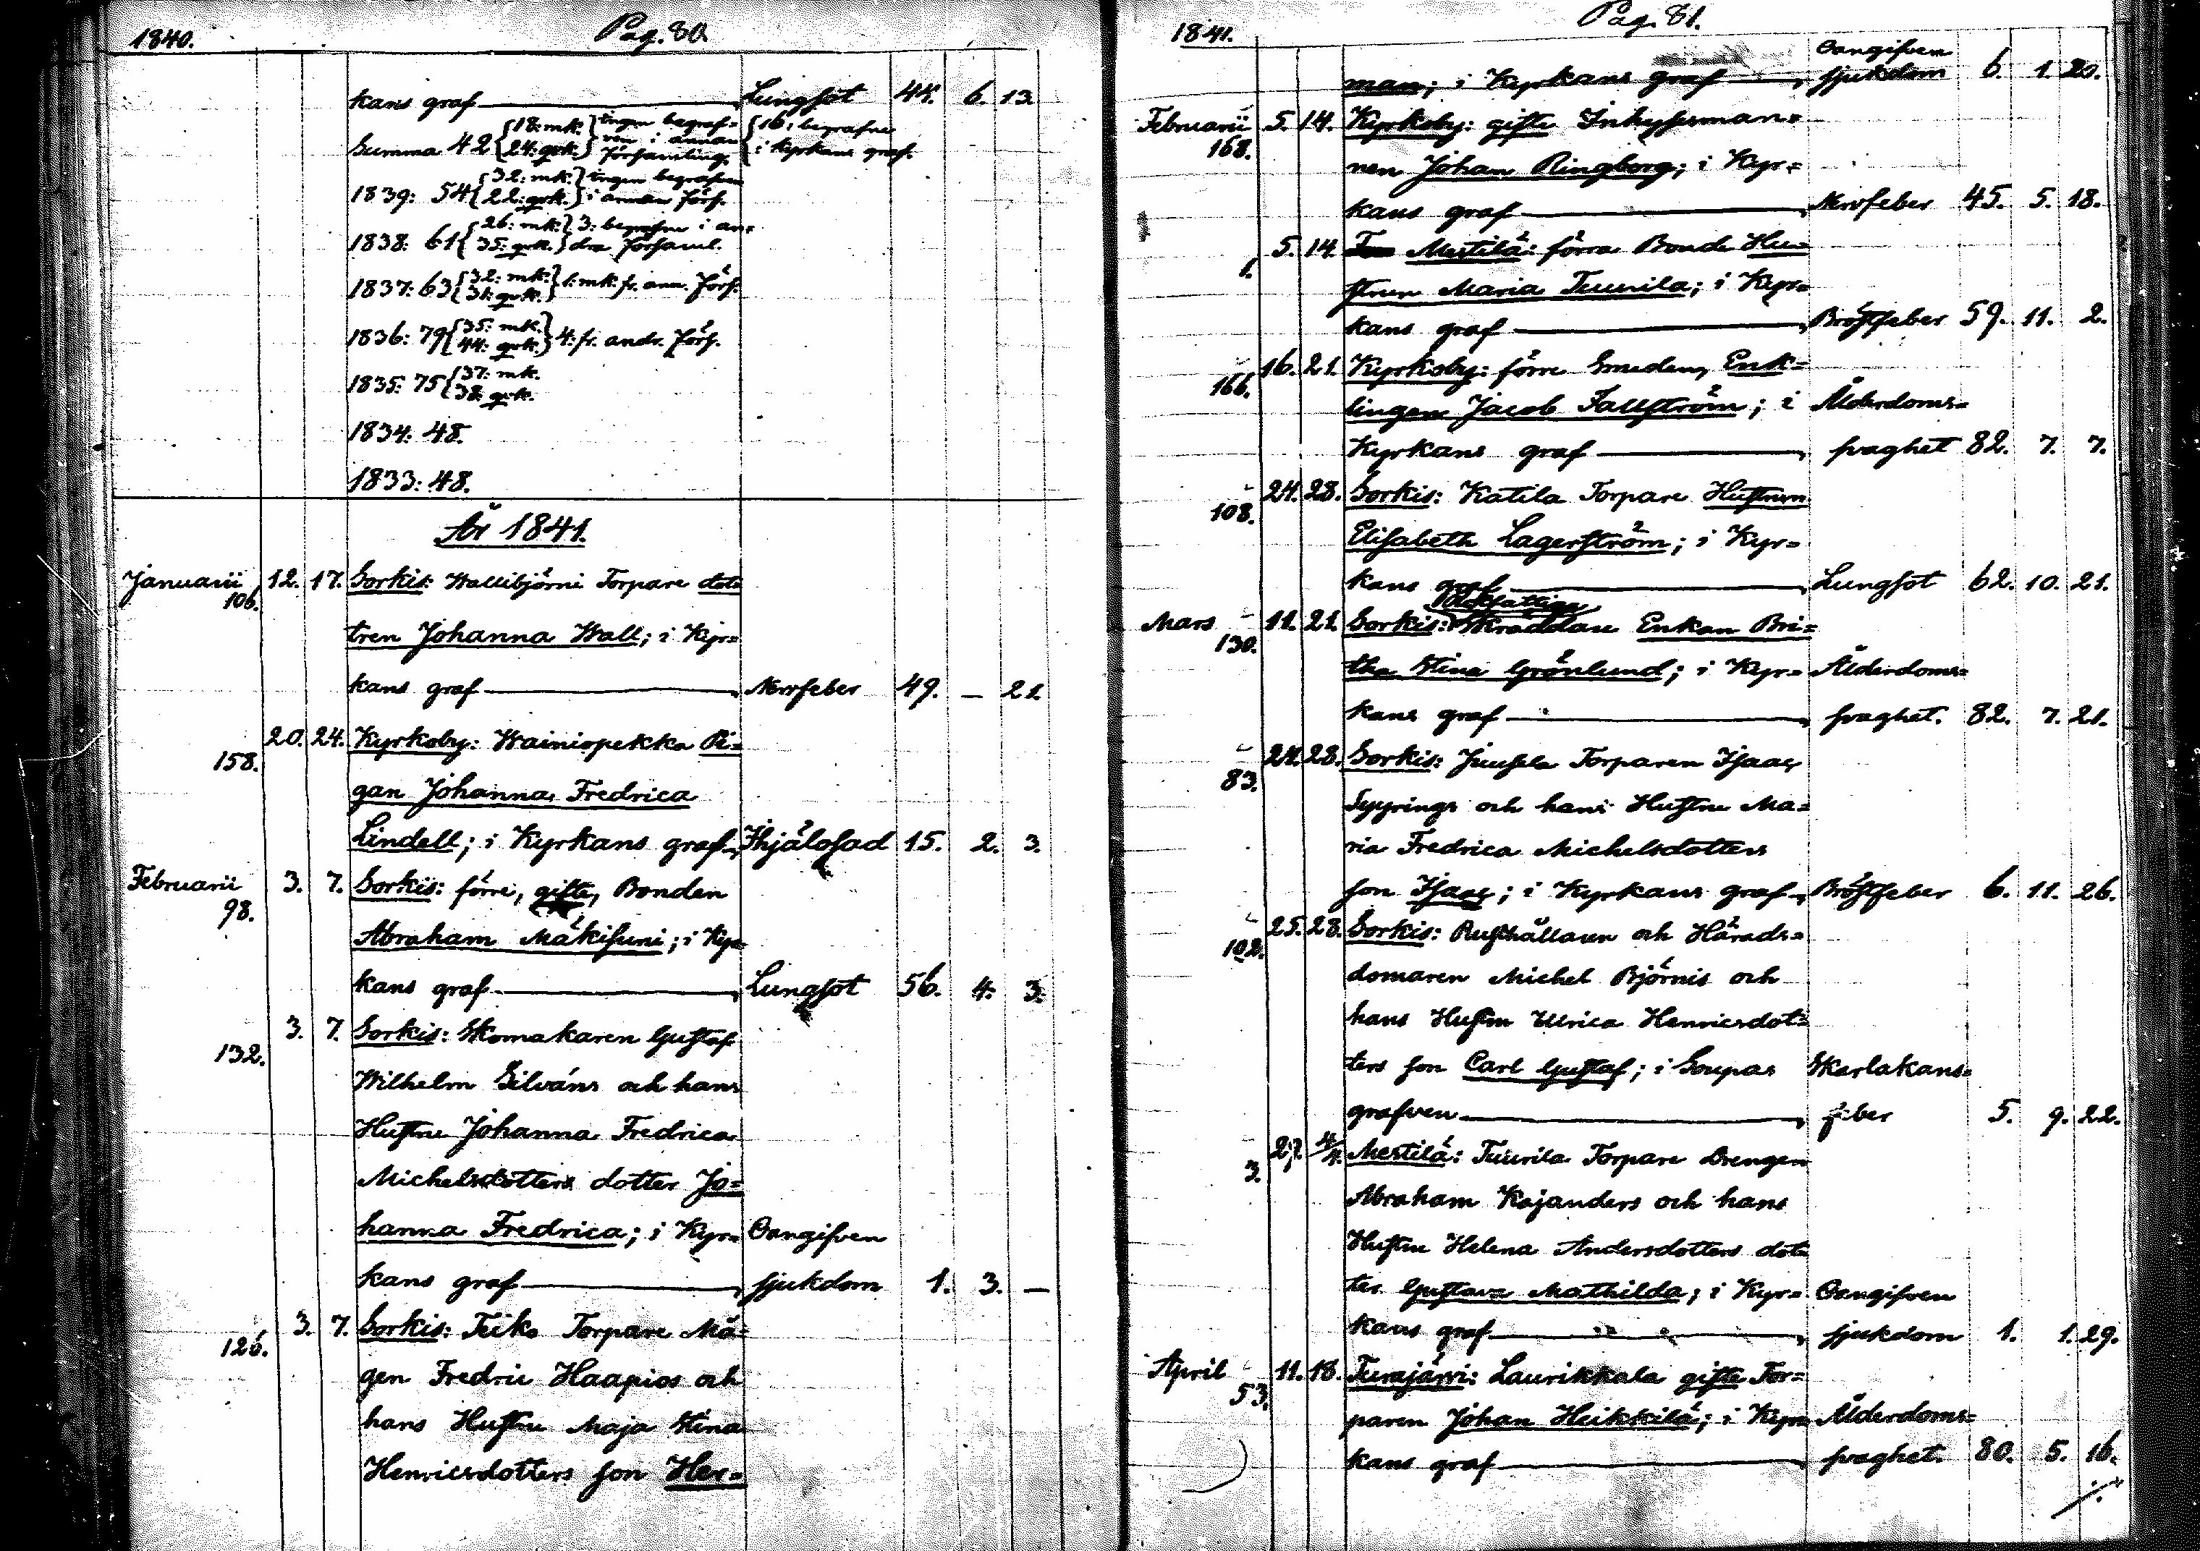 1840. Pag. 80.
kans graf Lungsot 44. 6. 13.
Summa 42 {18: mk. 24: qvk.} ingen begraf= ven i annan församling. {16: begrafne i Kyrkans graf.
1839: 54 {32: mk. 22: qvk.} ingen begrafven i annan Förs.
1838: 61 {26: mk. 35: qvk.} 3: begrafne i an= dra församl.
1837: 63 {32: mk. 31: qvk.} 1: mk. fr. ann. Förs.
1836: 79 {35: mk. 44: qvk.} 4: fr. andr. Förs.
1835: 75 {37: mk. 38: qvk.
1834: 48.
1833: 48.
År 1841.
Januarii 12. 17. Sorkis: Wallibjörni Torpare dot=
106.
tren Johanna Wall; i Kyr=
kans graf Nervfeber 49. – 21.
20. 24. Kyrkoby: Wainiopekka Pi=
158.
gan Johanna Fredrica
Lindell; i Kyrkans graf Ihjälosad 15. 2. 3.
Februarii 3. 7. Sorkis: förre, gifte, Bonden
98.
Abraham Mäkisuni; i Kyr=
kans graf Lungsot 56. 4. 3.
3. 7. Sorkis: Skomakaren Gustaf
132.
Wilhelm Silváns och hans
Hustru Johanna Fredrica
Michelsdotters dotter Jo=
hanna Fredrica; i Kyr= Oangifven
kans graf sjukdom 1. 3. –
3. 7. Sorkis: Teiko Torpare Må=
126.
gen Fredric Haapios och
hans Hustru Maja Stina
Henricsdotters son Her=
1841. Pag. 81.
man; i Kyrkans graf Oangifven sjukdom 6. 1. 20.
Februarii 5. 14. Kyrkoby: gifte Inhysesman=
168.
nen Johan Ringborg; i Kyr=
kans graf Nervfeber 45. 5. 18.
5. 14. Mestilä: förra Bonde Hu=
1.
strun Maria Tuurila; i Kyr=
kans graf Bröstfeber 59. 11. 2.
16. 21. Kyrkoby: förre Smeden, Enk=
166.
lingen Jacob Fallström; i Ålderdoms=
Kyrkans graf svaghet 82. 7. 7.
24. 28. Sorkis: Katila Torpare Hustrun
108.
Elisabeth Lagerström; i Kyr=
kans graf Lungsot 62. 10. 21.
Mars 11. 21. Sorkis: Skräddare Enkan Bri=
130.
tha Stina Grönlund; i Kyr= Ålderdoms=
kans graf svaghet. 82. 7. 21.
24. 28. Sorkis: Juusela Torparen Isaac
83.
Syyrings och hans Hustru Ma=
ria Fredrica Michelsdotters
son Isaac; i Kyrkans graf Bröstfeber 6. 11. 26.
25. 28. Sorkis: Rusthållaren och Härads=
102.
domaren Michel Björnis och
hans Hustru Ulrica Henricsdot=
ters son Carl Gustaf; i Soupas Skarlakans=
grafven feber 5. 9. 22.
27. 4/4. Mestilä: Tuurila Torpare Drengen
3.
Abraham Kajanders och hans
Hustru Helena Andersdotters dot=
ter Gustava Mathilda; i Kyr= Oangifven
kans graf sjukdom 1. 1. 29.
April 11. 18. Turajärvi: Laurikkala gifte Tor=
53.
paren Johan Heikkilä; i Kyr= Ålderdoms=
kans graf svaghet. 80. 5. 16.